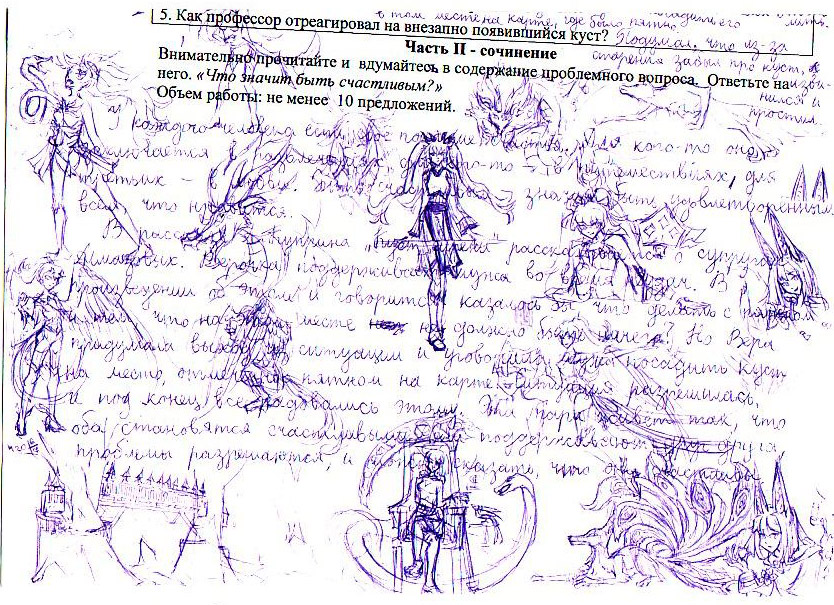 в том месте на карте, где было пятно
5. Как профессор отреагировал на внезапно появившийся куст? Подумал, что из-за
старения забыл про куст, и
Часть II - сочинение
Внимательно прочитайте и вдумайтесь в содержание проблемного вопроса. Ответьте на
него. «Что значит быть счастливым?»
Объем работы: не менее 10 предложений.
извинился и
простил.
У каждого человека есть своё счастья. Для кого-то оно
заключается в развлечениях, для кого-то – в путешествиях, для
третьих – в любви. Быть значит быть удовлетворённым
всем, что нравится.
В рассказе Куприна „Куст сирени" рассказывается о супругах
Алмазовых. Верочка поддерживает мужа во время В
произведении об этом и говорится казалось бы, что делать с пятном
и тем, что на этом месте не должно быть ничего? Но Вера
придумала выход из ситуации и уговорила мужа посадить куст
на место, отмеченное пятном на карте. Ситуация разрешилась,
и под конец все радовались этому. Эта пара живёт так, что
оба становятся счастливыми, поддерживают друг друга
проблемы разрешаются, и можно сказать, что они счастливы